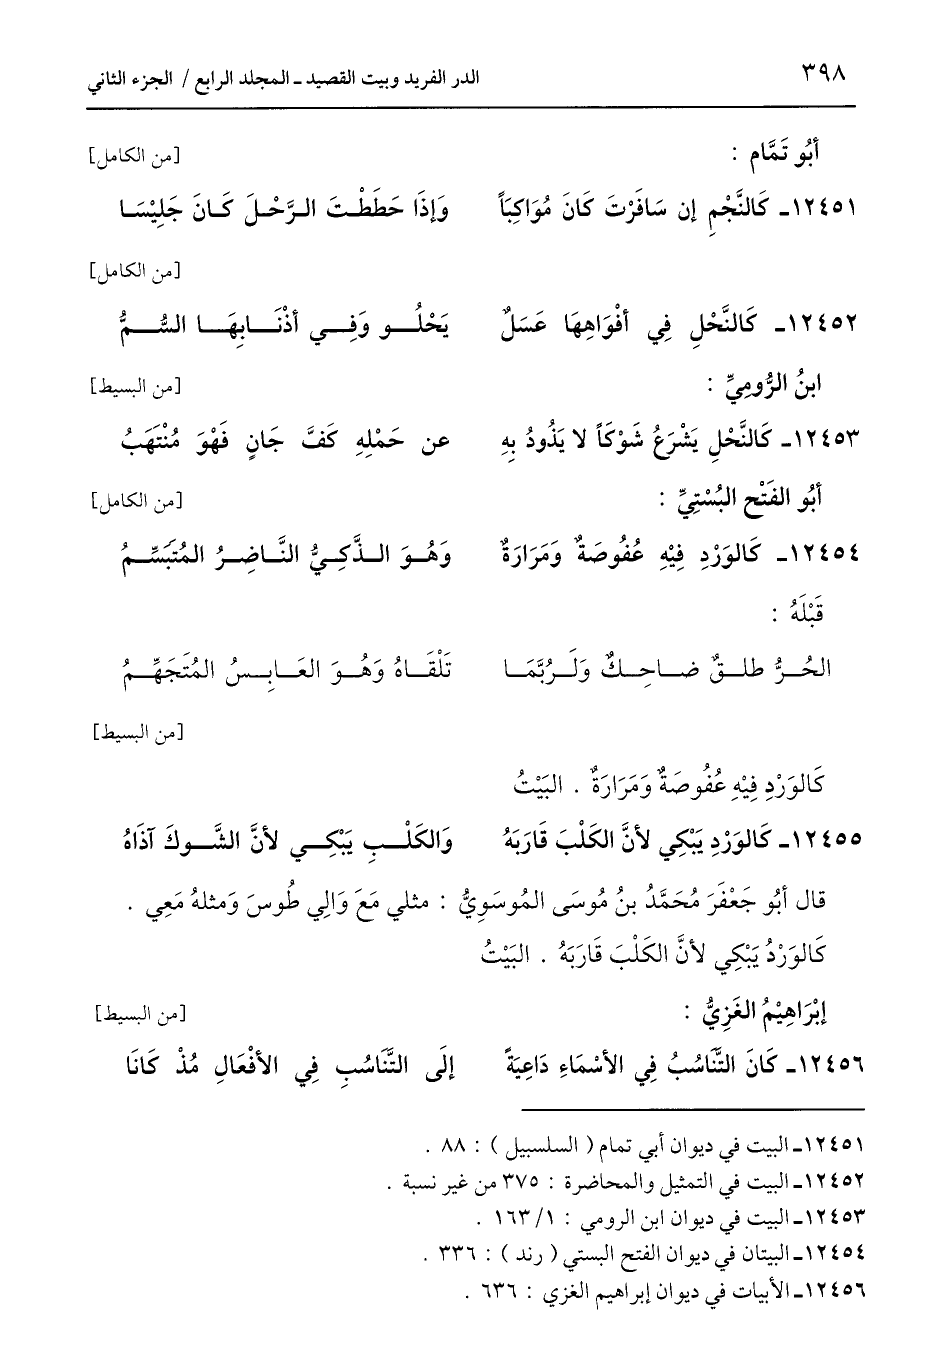 ٣٩٨ الدر الفريد وبيت القصيد ـ المجلد الرابع / الجزء الثاني
أَبُو تَمَّام : [من الكامل]
١٢٤٥١ـ كَالنَّجْمِ إن سَافَرْتَ كَانَ مُوَاكِبَاً وَإِذَا حَطَطْتَ الـرَّحْـلَ كَـانَ جَلِيْسَـا
[من الكامل]
١٢٤٥٢ـ كَالنَّحْلِ فِي أفْوَاهِهَا عَسَلٌ يَحْلُـــو وَفِـــي أذْنَـــابِهَـــا السُّـــمُّ
ابنُ الرُّومِيِّ : [من البسيط]
١٢٤٥٣ـ كَالنَّحْلِ يَشْرَعُ شَوْكَاً لا يَذُودُ بِهِ عن حَمْلِهِ كَفَّ جَانٍ فَهْوَ مُنْتَهَبُ
أَبُو الفَتْح البُسْتِيِّ : [من الكامل]
١٢٤٥٤ـ كَالوَرْدِ فِيْهِ عُفُوصَةٌ وَمَرَارَةٌ وَهُـوَ الـذَّكِـيُّ النَّاضِـرُ المُتَبَسِّـمُ
قَبْلَهُ :
الحُـرُّ طلـقٌ ضـاحِـكٌ وَلَـرُبَّمَـا تَلْقَـاهُ وَهُـوَ العَـابِـسُ المُتَجَهِّـمُ
[من البسيط]
كَالوَرْدِ فِيْهِ عُفُوصَةٌ وَمَرَارَةٌ . البَيْتُ
١٢٤٥٥ـ كَالوَرْدِ يَبْكِي لأنَّ الكَلْبَ قَارَبَهُ وَالكَلْـبِ يَبْكِـي لأنَّ الشَّـوكَ آذَاهُ
قال أَبُو جَعْفَرَ مُحَمَّدُ بنُ مُوسَى المُوسَوِيُّ : مثلي مَعَ وَالِي طُوسَ وَمثلهُ مَعِي .
كَالوَرْدُ يَبْكِي لأنَّ الكَلْبَ قَارَبَهُ . البَيْتُ
إِبْرَاهِيْمُ الغَزِيُّ : [من البسيط]
١٢٤٥٦ـ كَانَ التَّنَاسُبُ فِي الأسْمَاءِ دَاعِيَةً إلَى التَّنَاسُبِ فِي الأفْعَالِ مُذْ كَانَا
١٢٤٥١ـ البيت في ديوان أبي تمام ( السلسبيل ) : ٨٨ .
١٢٤٥٢ـ البيت في التمثيل والمحاضرة : ٣٧٥ من غير نسبة .
١٢٤٥٣ـ البيت في ديوان ابن الرومي : ١/ ١٦٣ .
١٢٤٥٤ـ البيتان في ديوان الفتح البستي ( رند ) : ٣٣٦ .
١٢٤٥٦ـ الأبيات في ديوان إبراهيم الغزي : ٦٣٦ .